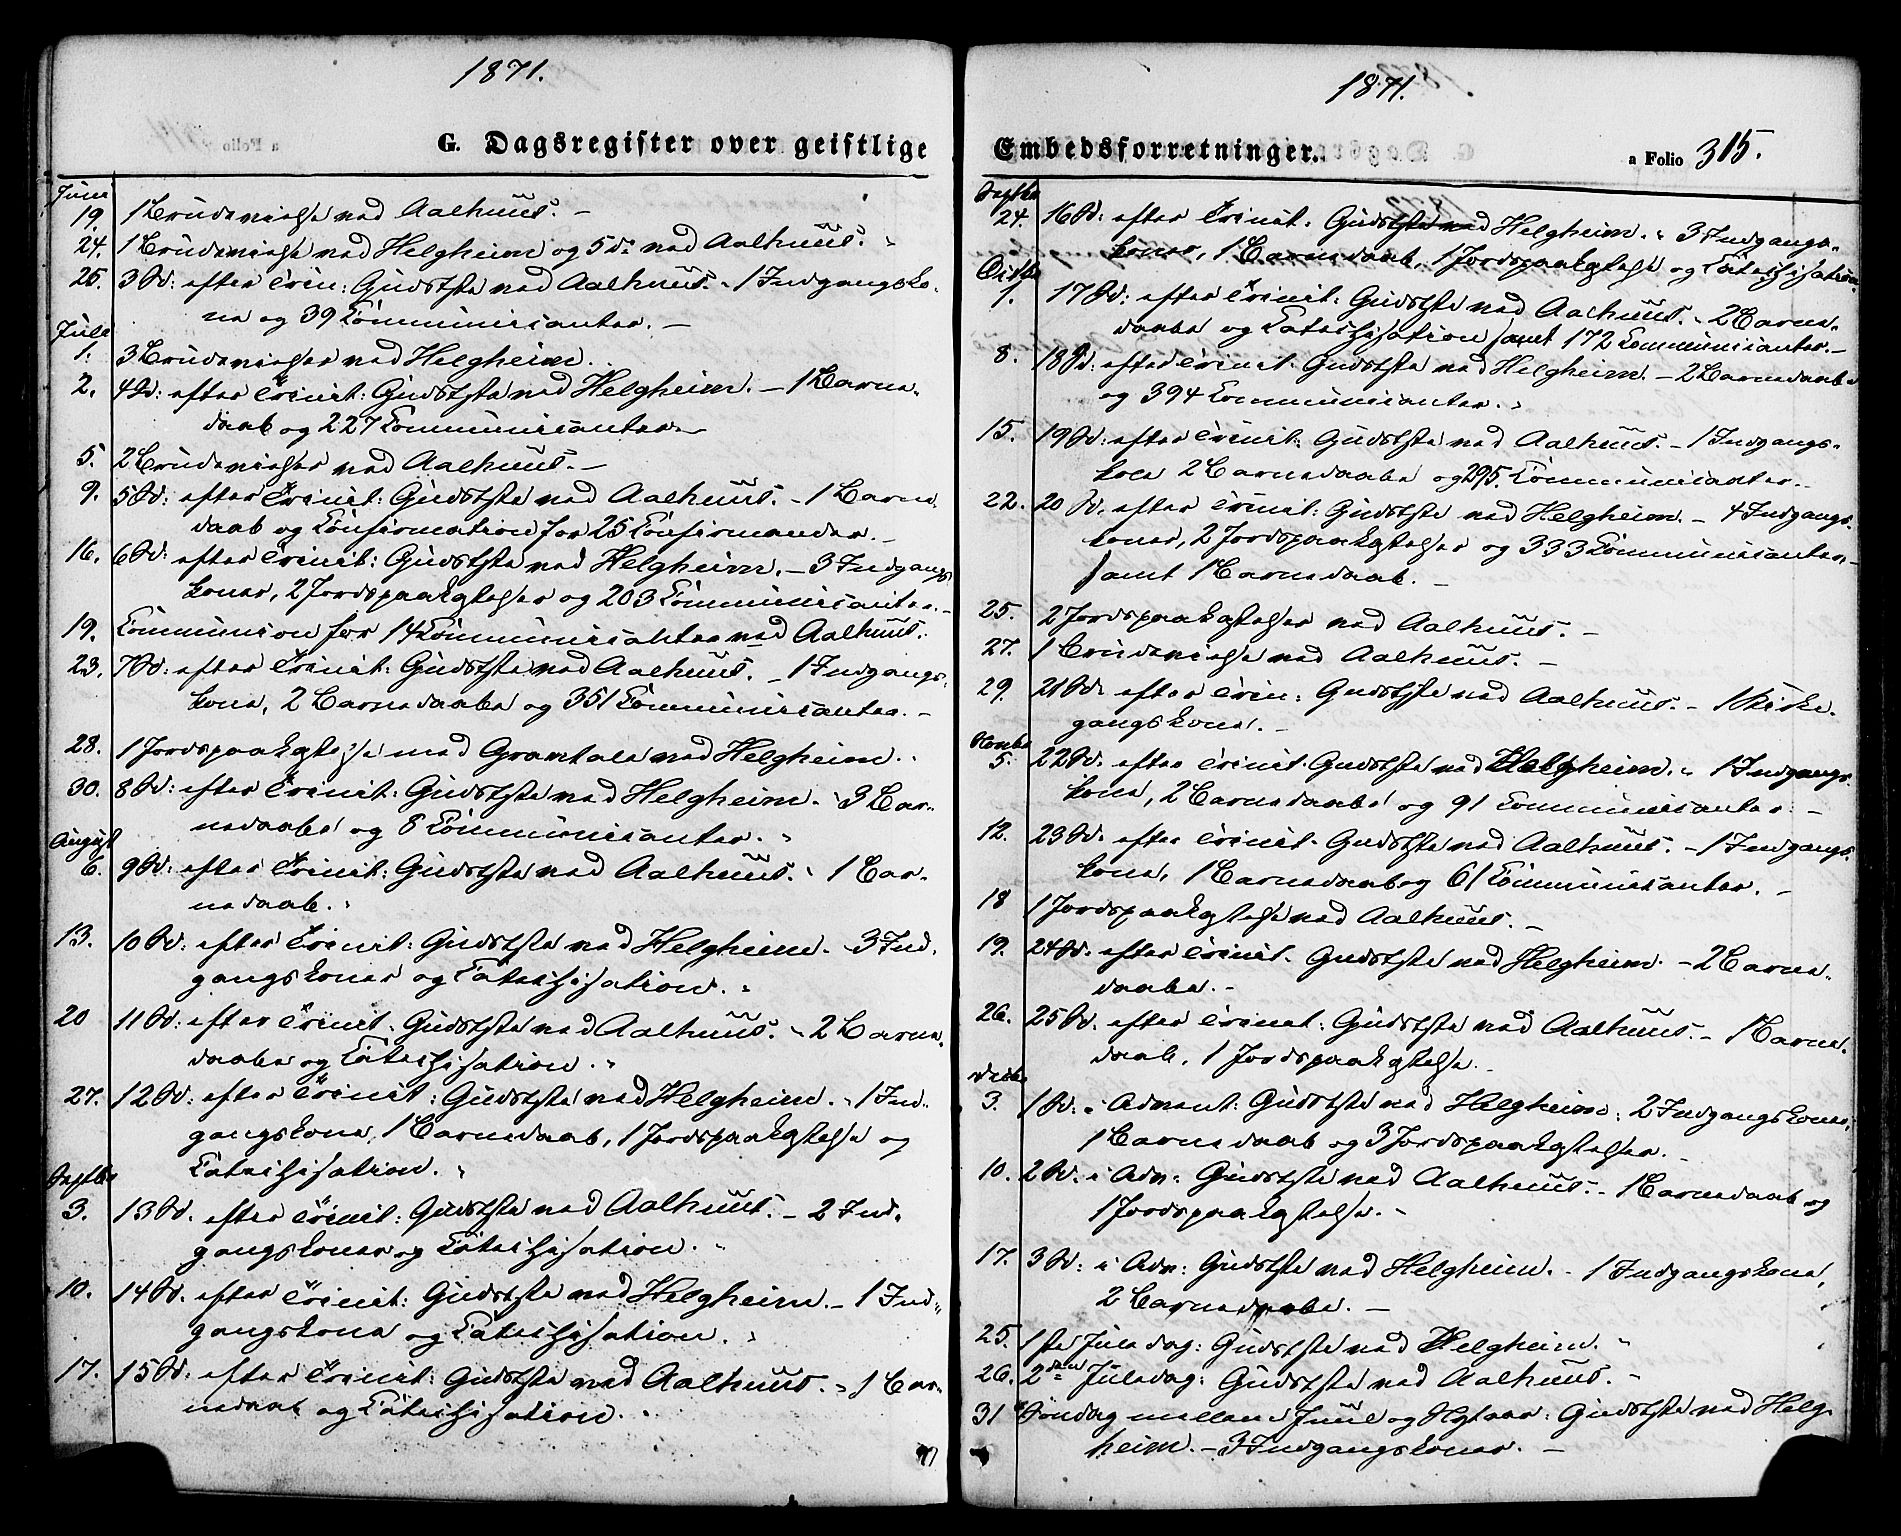 1871.
G. Dagsregister over geistlige
Juni
19. 1 Brudevielse ved Aalhuus. –
24. 1 Brudevielse ved Helgheim og 5 do ved Aalhuus.
25. 3 Sd: efter Trin: Gudstste ved Aalhuus. - 1 Indgangsko-
ne og 39 Communicanter. –
Juli
1. 3 Brudevielser ved Helgheim.
2. 4 Sd: efter Trinit: Gudstste ved Helgheim. – 1 Barne-
daab og 227 Communicanter. –
5. 2 Brudevielser ved Aalhuus. –
9. 5 Sd: efter Trinit: Gudstste ved Aalhuus. – 1 Barne-
daab og Confirmation for 25 Confirmander. –
16. 6 Sd: efter Trinit: Gudstste ved Helgheim. – 3 Indgangs
koner, 2 Jordspaakastelser og 203 Communicanter. –
19. Communion for 14 Communicanter ved Aalhuus.
23. 7 Sd: efter Trinit: Gudstste ved Aalhuus. – 1 Indgangs-
kone, 2 Barnedaabe og 351 Communicanter. –
28. 1 Jordspaakastelse med Gravtale ved Helgheim.
30. 8 Sd: efter Trinit: Gudstste ved Helgheim. - 3 Bar-
nedaabe og 8 Communicanter.
August
6. 9 Sd: efter Trinit: Gudstste ved Aalhuus. - 1 Bar-
nedaab.
13. 10 Sd: efter Trinit: Gudstste ved Helgheim. - 3 Ind-
gangskoner og Catechisation.
20 11 Sd: efter Trinit. Gudstste ved Aalhuus. - 2 Barne-
daabe og Catechisation.
27. 12 Sd: efter Trinit: Gudstste ved Helgheim. - 1 Ind-
gangskone, 1 Barnedaab, 1 Jordspaakastelse og
Catechisation.
Septbr
3. 13 Sd. efter Trinit: Gudstste ved Aalhuus. – 2 Ind-
gangskoner og Catechisation.
10. 14 Sd. efter Trinit: Gudstste ved Helgheim. – 1 Ind-
gangskone og Catechisation.
17. 15 Sd: efter Trinit: Gudstste ved Aalhuus. - 1 Bar-
nedaab og Catechisation.
1871.
Embedsforretninger. a Folio 315.
Septbr
24. 16 Sd: efter Trinit: Gudstste ved Helgheim. - 3 Indgangs-
koner, 1 Barnedaab, 1 Jordspaakastelse og Catechisation
Octbr
1. 17 Sd: efter Trinit: Gudstste ved Aalhuus. - 2 Barne-
daabe og Catechisation samt 172 Communicanter. –
8. 18 Sd: efter Trinit. Gudstste ved Helgheim. – 2 Barnedaabe
og 394 Communicanter.
15. 19 Sd: efter Trinit: Gudstste ved Aalhuus. – 1 Indgangs-
kone 2 Barnedaabe og 295. Communicanter. –
22. 20 Sd. efter Trinit: Gudstste ved Helgheim. – 4 Indgangs-
koner, 2 Jordspaakastelser og 333 Communicanter, –
samt 1 Barnedaab. –
25. 2 Jordspaakastelser ved Aalhuus. –
27. 1 Brudevielse ved Aalhuus. –
29. 21 Sd. efter Trin: Gudstste ved Aalhuus. – 1 Kirke-
gangskone. –
Novbr
5. 22 Sd. efter Trinit: Gudstste ved Helgheim. - 1 Indgangs-
kone, 2 Barnedaabe og 91 Communicanter. –
12. 23 Sd. efter Trinit. Gudstste ved Aalhuus. – 1 Indgangs-
kone, 1 Barnedaab og 61 Communicanter. –
18 1 Jordspaakastelse ved Aalhuus. –
19. 24 Sd. efter Trinit. Gudstste ved Helgheim. – 2 Barne-
daabe. –
26. 25 Sd. efter Trinit: Gudstste ved Aalhuus. – 1 Barne-
daab, 1 Jordspaakastelse. –
Decbr
3. 1 Sd: i Advent: Gudstste ved Helgheim: 2 Indgangskoner,
1 Barnedaab og 3 Jordspaakastelser. –
10. 2 Sd: i Adv: Gudstste ved Aalhuus. - 1 Barnedaab og
1 Jordspaakastelse. –
17. 3 Sd: i Adv: Gudstste ved Helgheim. - 1 Indgangskone,
2 Barnedaabe. –
25. 1ste Juledag: Gudstste ved Helgheim.
26. 2den Juledag: Gudstste ved Aalhuus. –
31 Søndag mellem Juul og Nytaar: Gudstste ved Helg-
heim. – 3 Indgangskoner. –